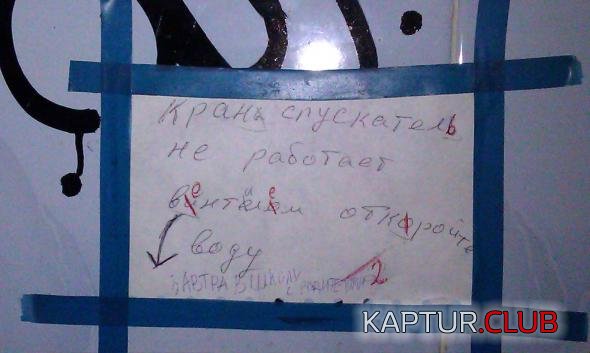 Кранъ спускатель
не работает
вентилем откройте
воду
ЗАВТРА В ШКОЛУ С РОДИТЕЛЯМИ 2
KAPTUR.CLUB